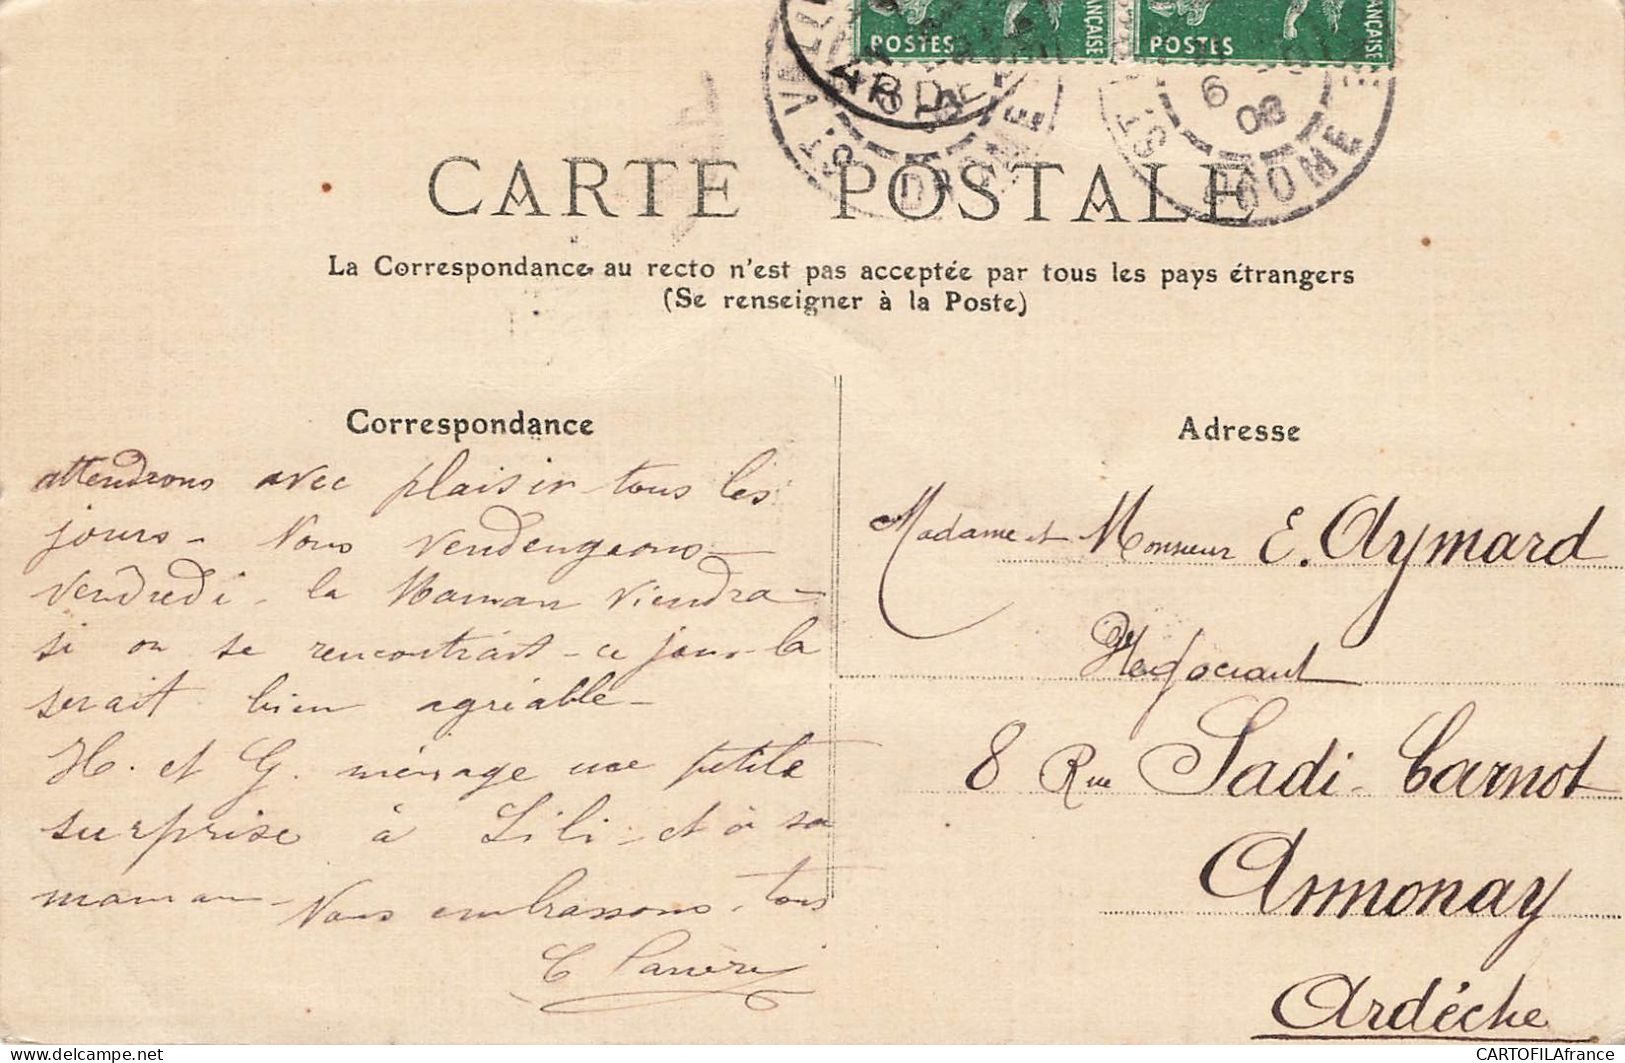 POSTES
FRANÇAISE
POSTES
FRANÇAISE
ST VALL
DROME
ARD
ST
DROME
6
08
CARTE POSTALE
La Correspondance au recto n'est pas acceptée par tous les pays étrangers
(Se renseigner à la Poste)
Correspondance
attendrons avec plaisir tous les
jours - Nous vendengeons
vendredi - la Maman viendra -
si on se rencontrait - ce jour-la
serait bien agréable -
H. et G. ménage une petite
surprise à Lili et à sa
maman - Nous embrassons tous
Adresse
Madame et Monsieur E. Aymard
Negociant
8 Rue Sadi-Carnot
Annonay
Ardèche
CARTOFILAfrance